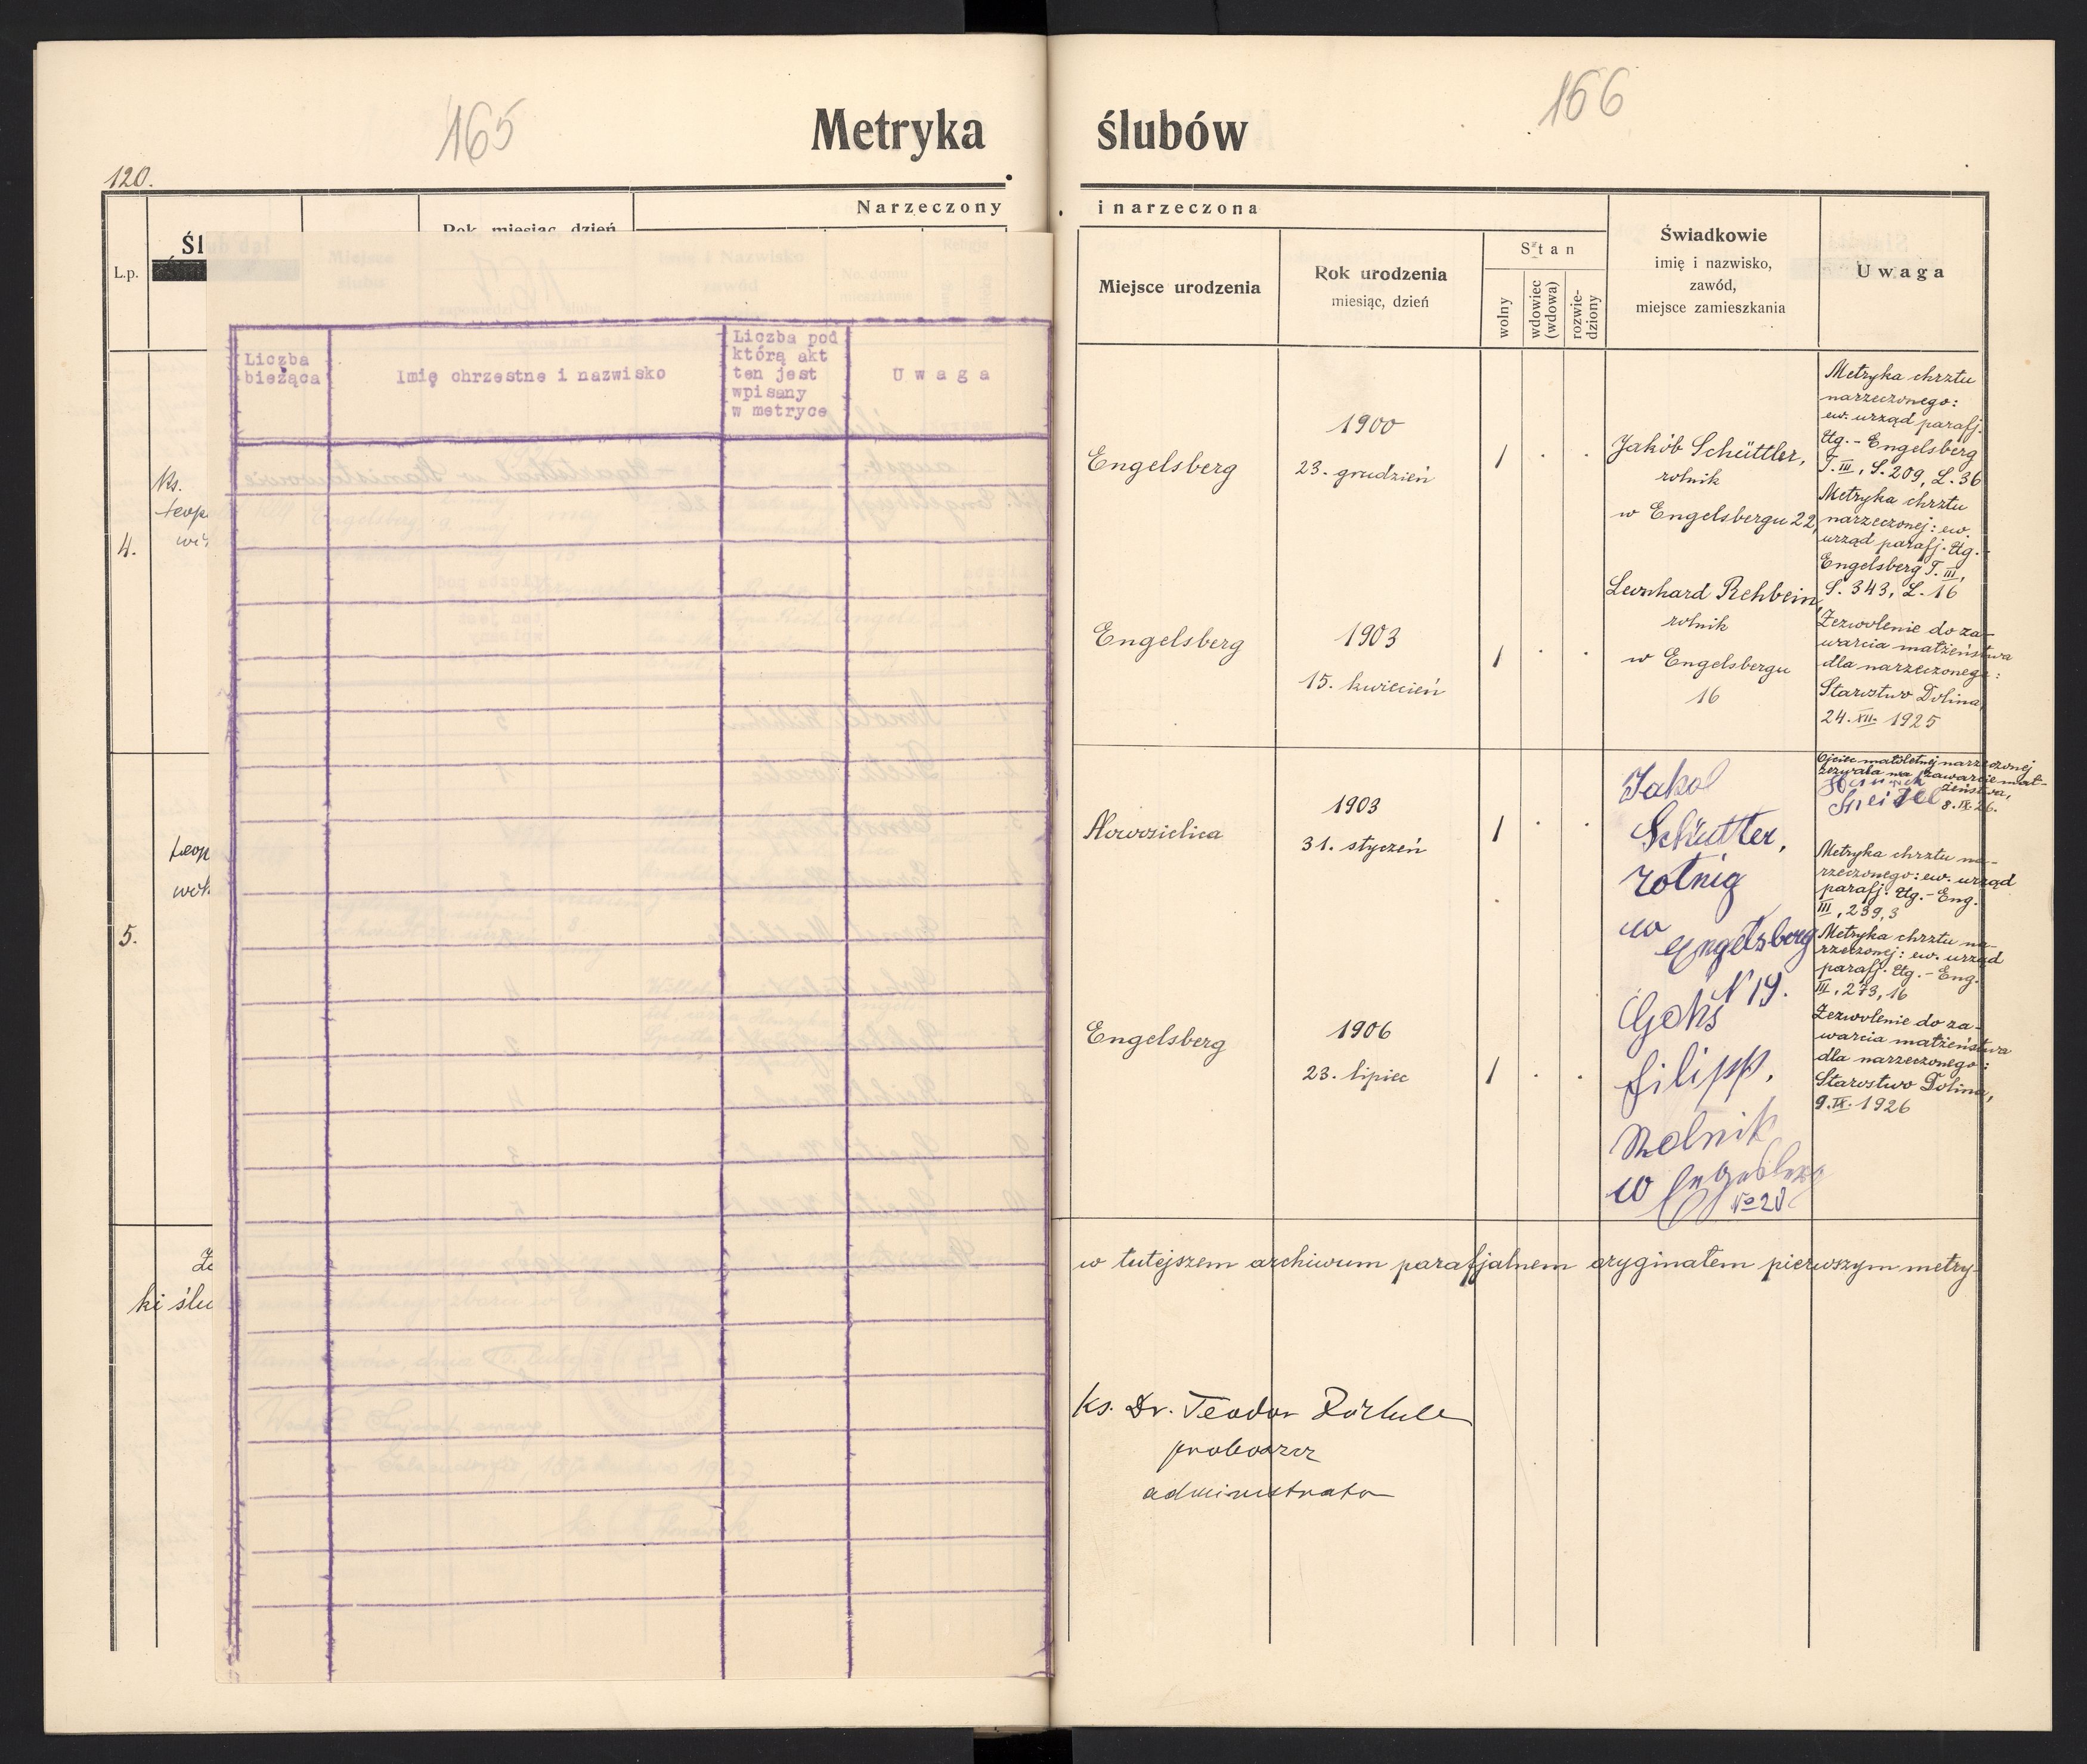 165
166
Metryka ślubów
120.
Narzeczony
i narzeczona
L.p.
Śl
Rok miesiąc dzień
Miejsce urodzenia
Rok urodzenia
miesiąc, dzień
Stan
wolny
wdowiec
(wdowa)
rozwie-
dziony
Świadkowie
imię i nazwisko,
zawód,
miejsce zamieszkania
Uwaga
Liczba
bieżąca
Imię chrzestne i nazwisko
Liczba pod
którą akt
ten jest
wpisany
w metryce
Uwaga
4.
ks.
Leop
Engelsberg
1900
23. grudzień
Jakób Schüttler,
rolnik
w Engelsbergu 22,
Engelsberg
1903
15. kwiecień
Leonhard Rehbein,
rolnik
w Engelsbergu
16
Metryka chrztu
narzeczonego:
ew. urząd parafj.
Ug.-Engelsberg
T. III, S. 209, L. 36
Metryka chrztu
narzeczonej: ew.
urząd parafj. Ug.-
Engelsberg T. III,
S. 343, L. 16
Zezwolenie do za-
warcia małżeństwa
dla narzeczonego:
Starostwo Dolina,
24. XII. 1925
5.
Leop
Nowosielica
1903
31. styczeń
Jakob
Schüttler,
rolnig
w
Engelsberg
N 19.
Engelsberg
1906
23. lipiec
Goks
Filipp,
Rolnik
w Engelsberg
No 20
Ojciec małoletniej narzeczonej
zezwala na zawarcie mał-
żeństwa,
8. IX. 26.
Metryka chrztu na-
rzeczonego: ew. urząd
parafj. Ug.-Eng.
III, 239, 3
Metryka chrztu na-
rzeczonej: ew. urząd
parafj. Ug.-Eng.
III, 273, 16
Zezwolenie do za-
warcia małżeństwa
dla narzeczonego:
Starostwo Dolina,
9. IX. 1926
ki ślu
w tutejszem archiwum parafjalnem oryginałem pierwszym metry-
ks. Dr. Teodor
proboszcz
administrator